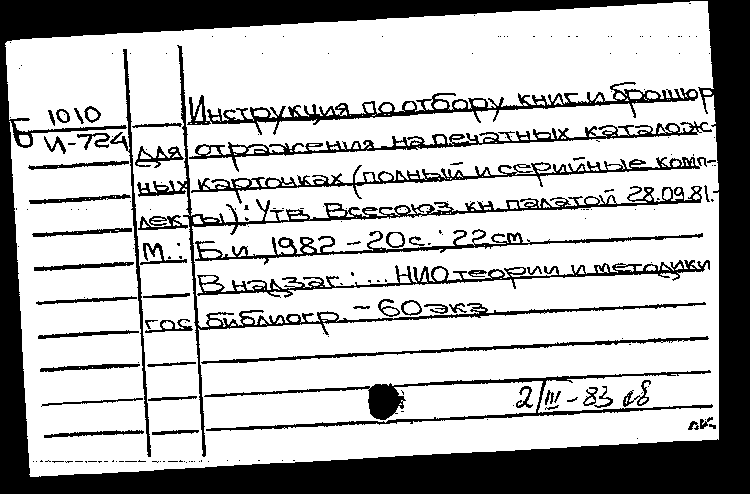 Б 1010
И-724
Инструкция по отбору книг и брошюр
для отражения на печатных каталож-
ных карточках (полный и серийные комп-
лекты): Утв. Всесоюз. кн. палатой 28.09.81.-
М.: Б.и., 1982 - 20с.; 22см.
В надзаг.: ... НИО теории и методики
гос библиогр. - 60экз.
2/III - 83